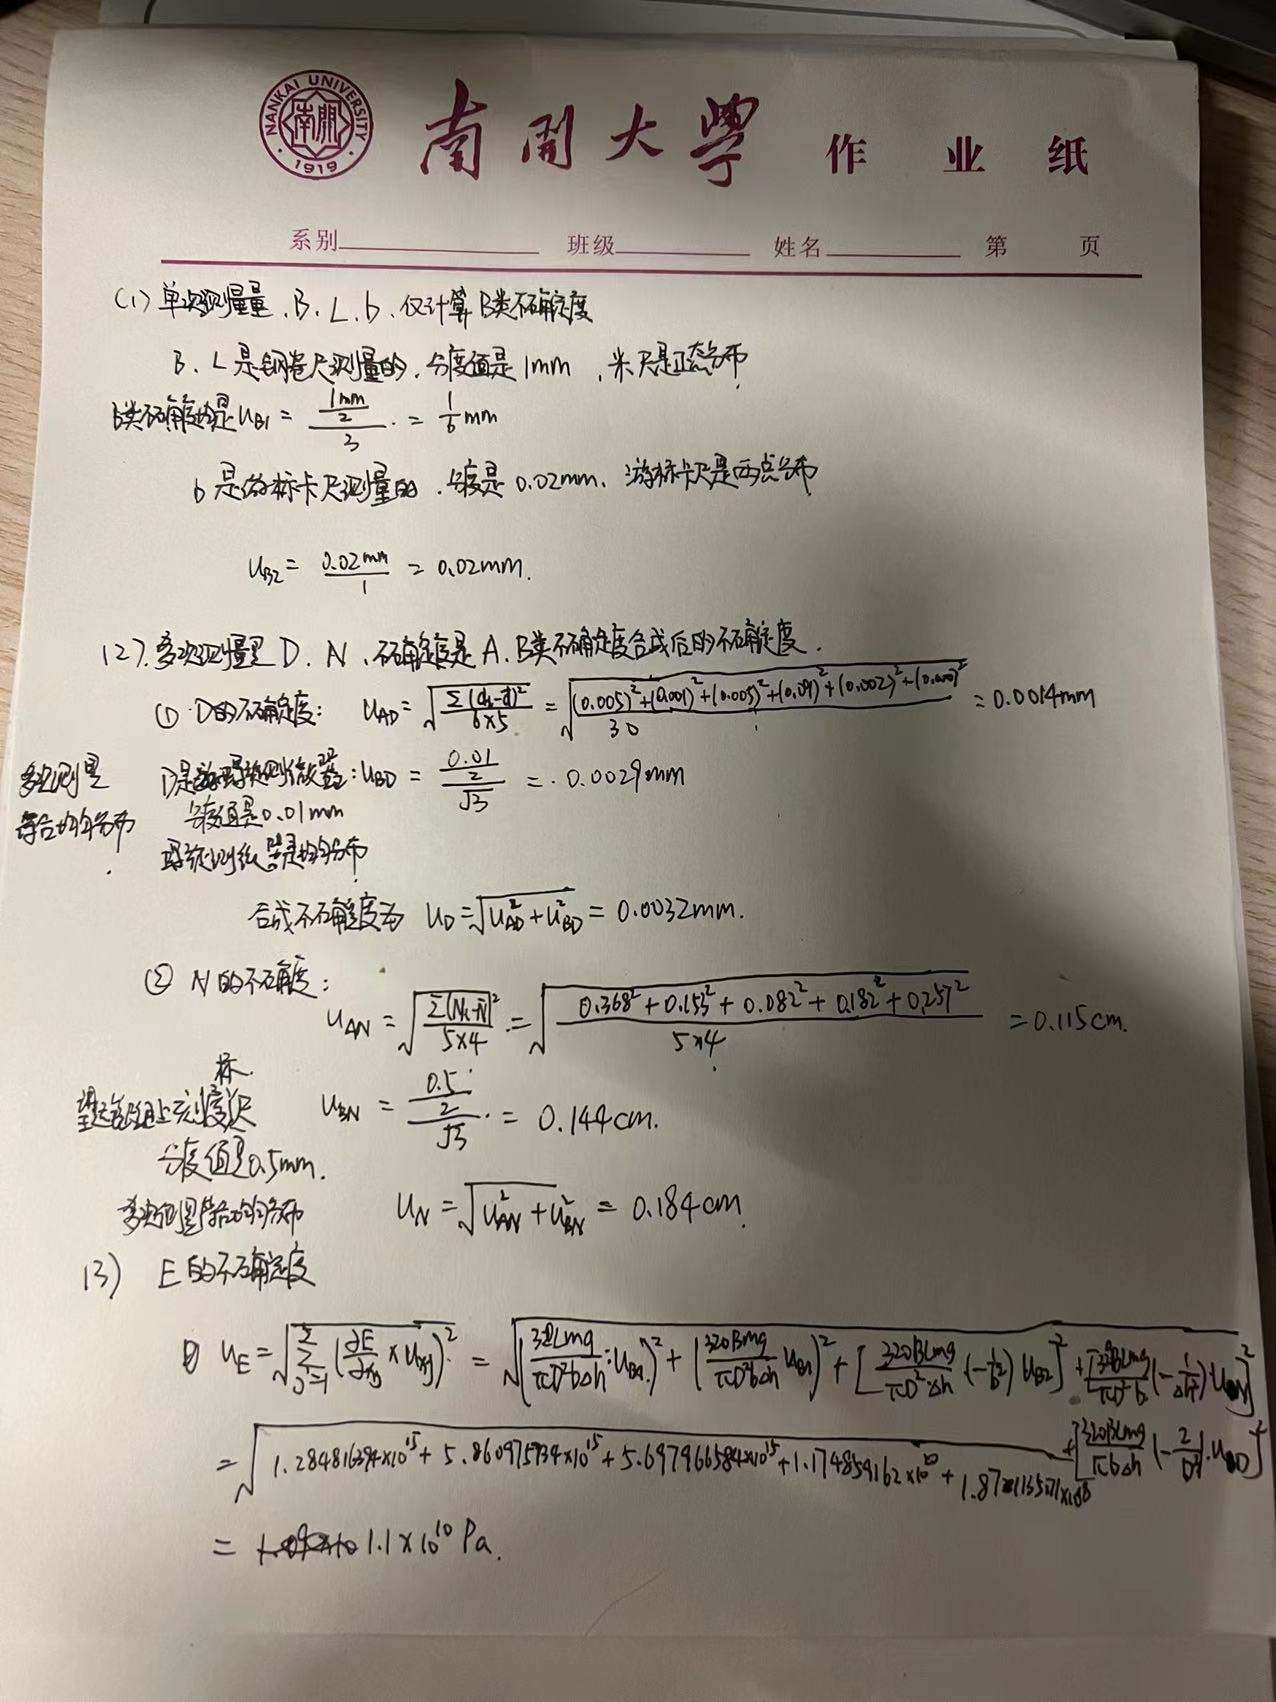 NANKAI UNIVERSITY
南開
· 1919 ·
南開大學 作业纸
系别 班级 姓名 第 页
(1) 单次测量量、B、L、b、仅计算B类不确定度
B、L是钢卷尺测量的,分度值是1mm,米尺是正态分布
B类不确定度均是 u_B1 = (1mm/2)/3 = 1/6 mm
b是游标卡尺测量的,分度是0.02mm、游标卡尺是两点分布
u_B2 = 0.02mm/1 = 0.02mm.
(2).多次测量量D、N、不确定度是A、B类不确定度合成后的不确定度.
① D的不确定度: u_AD = √(Σ(di-d̄)²/6×5) = √((0.005)²+(0.001)²+(0.005)²+(0.001)²+(0.002)²+(0.000)²/30) = 0.0014mm
多次测量
符合均匀分布
D是螺旋测微器: u_BD = (0.01/2)/√3 = 0.0029mm
分度值是0.01mm
螺旋测微器是均匀分布
合成不确定度为 u_D = √(u_AD²+u_BD²) = 0.0032mm.
② N的不确定度:
u_AN = √(Σ(Ni-N̄)²/5×4) = √(0.368²+0.153²+0.082²+0.182²+0.257²/5×4) = 0.115cm.
望远镜组上标尺
分度值是0.5mm.
u_BN = (0.5/2)/√3 = 0.144cm.
多次测量符合均匀分布
u_N = √(u_AN²+u_BN²) = 0.184cm.
(3) E的不确定度
u_E = √(Σ(∂E/∂xj × u_xj)²) = √((32Lmg/πD²bΔh · u_B1)² + (32Bmg/πD²bΔh u_B1)² + [32BLmg/πD²Δh (-1/b²) u_B2]² + [32BLmg/πD²b (-1/Δh²) · u_N]²
+ [32BLmg/πbΔh (-2/D³) · u_D]²
= √(1.284816394×10¹⁵ + 5.860975734×10¹⁵ + 5.697966584×10¹⁵ + 1.174859162×10²⁰ +
= 1.1×10¹⁰ Pa.